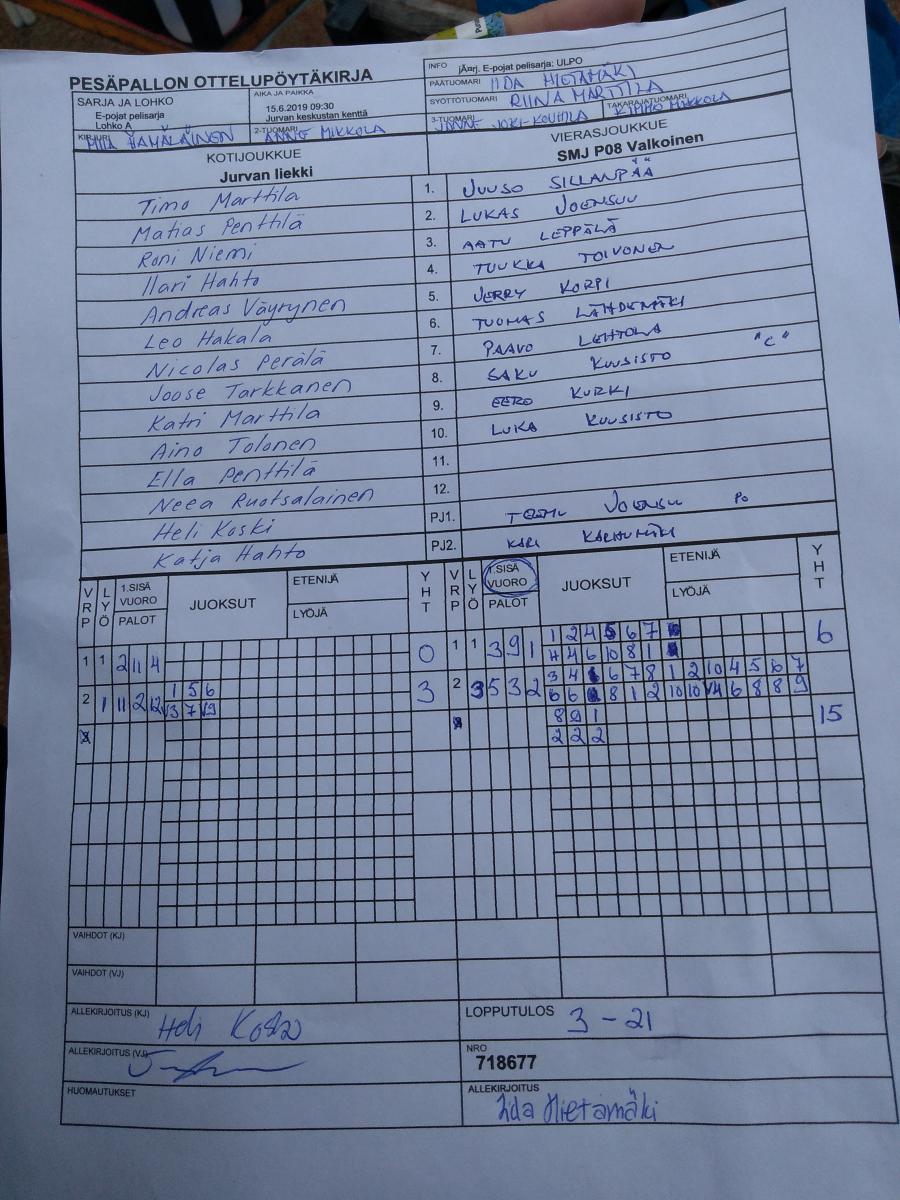 PESÄPALLON OTTELUPÖYTÄKIRJA
INFO jÄrrj. E-pojat pelisarja: ULPO
PÄÄTUOMARI IIDA HIETAMÄKI
SARJA JA LOHKO
E-pojat pelisarja
Lohko A
AIKA JA PAIKKA
15.6.2019 09:30
Jurvan keskustan kenttä
SYÖTTÖTUOMARI RIINA MARTTILA
KIRJURI MIIA HÄMÄLÄINEN
2-TUOMARI ANNE MIKKOLA
3-TUOMARI JANNE JOKI-KOUHILA
TAKARAJATUOMARI KIMMO MIKKOLA
KOTIJOUKKUE
Jurvan liekki
VIERASJOUKKUE
SMJ P08 Valkoinen
Timo Marttila 1. JUUSO SILLANPÄÄ
Matias Penttilä 2. LUKAS JOENSUU
Roni Niemi 3. AATU LEPPÄLÄ
Ilari Hahto 4. TUUKKA TOIVONEN
Andreas Väyrynen 5. JERRY KORPI
Leo Hakala 6. TUOMAS LÄHDEMÄKI
Nicolas Perälä 7. PAAVO LEHTOLA "C"
Joose Tarkkanen 8. SAKU KUUSISTO
Katri Marttila 9. EERO KURKI
Aino Tolonen 10. LUKA KUUSISTO
Ella Penttilä 11.
Neea Ruotsalainen 12.
Heli Koski PJ1. TEEMU JOENSUU PO
Katja Hahto PJ2. KARI KARHUMÄKI
VRP LYÖ 1.SISÄ VUORO PALOT JUOKSUT ETENIJÄ LYÖJÄ YHT VRP LYÖ 1.SISÄ VUORO PALOT JUOKSUT ETENIJÄ LYÖJÄ YHT
1 1 2 11 4 0 1 1 3 9 1 1 2 4 5 6 7 6
4 4 6 10 8 1
2 1 11 2 12 1 5 6 3 2 3 5 3 2 3 4 6 7 8 1 2 10 4 5 6 7
3 7 9 6 6 8 1 2 10 10 4 6 8 8 9
8 9 1 15
2 2 2
VAIHDOT (KJ)
VAIHDOT (VJ)
ALLEKIRJOITUS (KJ) Heli Koski
LOPPUTULOS 3 - 21
ALLEKIRJOITUS (VJ)
NRO
718677
HUOMAUTUKSET
ALLEKIRJOITUS
Iida Hietamäki